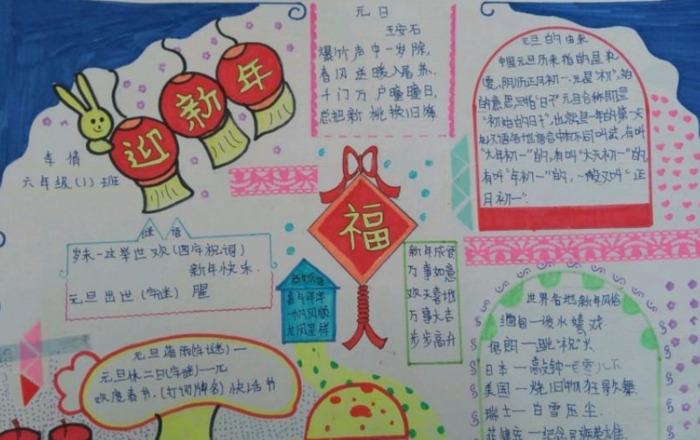 迎新年
李倩
六年级(1)班
元日
王安石
爆竹声中一岁除,
春风送暖入屠苏,
千门万户曈曈日,
总把新桃换旧符
元旦的由来
中国元旦历来指的是
夏,阴历正月初一.元是"初",始
的意思.旦指"日子"元旦合称即是
"初始的日子",也就是一年的第一天
叫法,有叫
"大年初一"的,有叫"大天初一"的,
有叫"年初一"的,一般又叫"正
月初一"
谜语
岁末一过举世欢(四字祝词)
新年快乐.
元旦出世(字谜)腥
福
新年成语
万事如意
欢天喜地
万事大吉
步步高升
吉年祥年
一帆风顺
龙凤呈祥
元旦(字谜)一
元旦休二日(字谜)一兀
欢度春节.(打词牌名)快活节
世界各地新年风俗
缅甸一泼水嬉戏
伊朗一跳"祝"火
日本一敲钟一百零八下
美国一烧旧物狂欢歌舞
瑞士一白雪压尘.